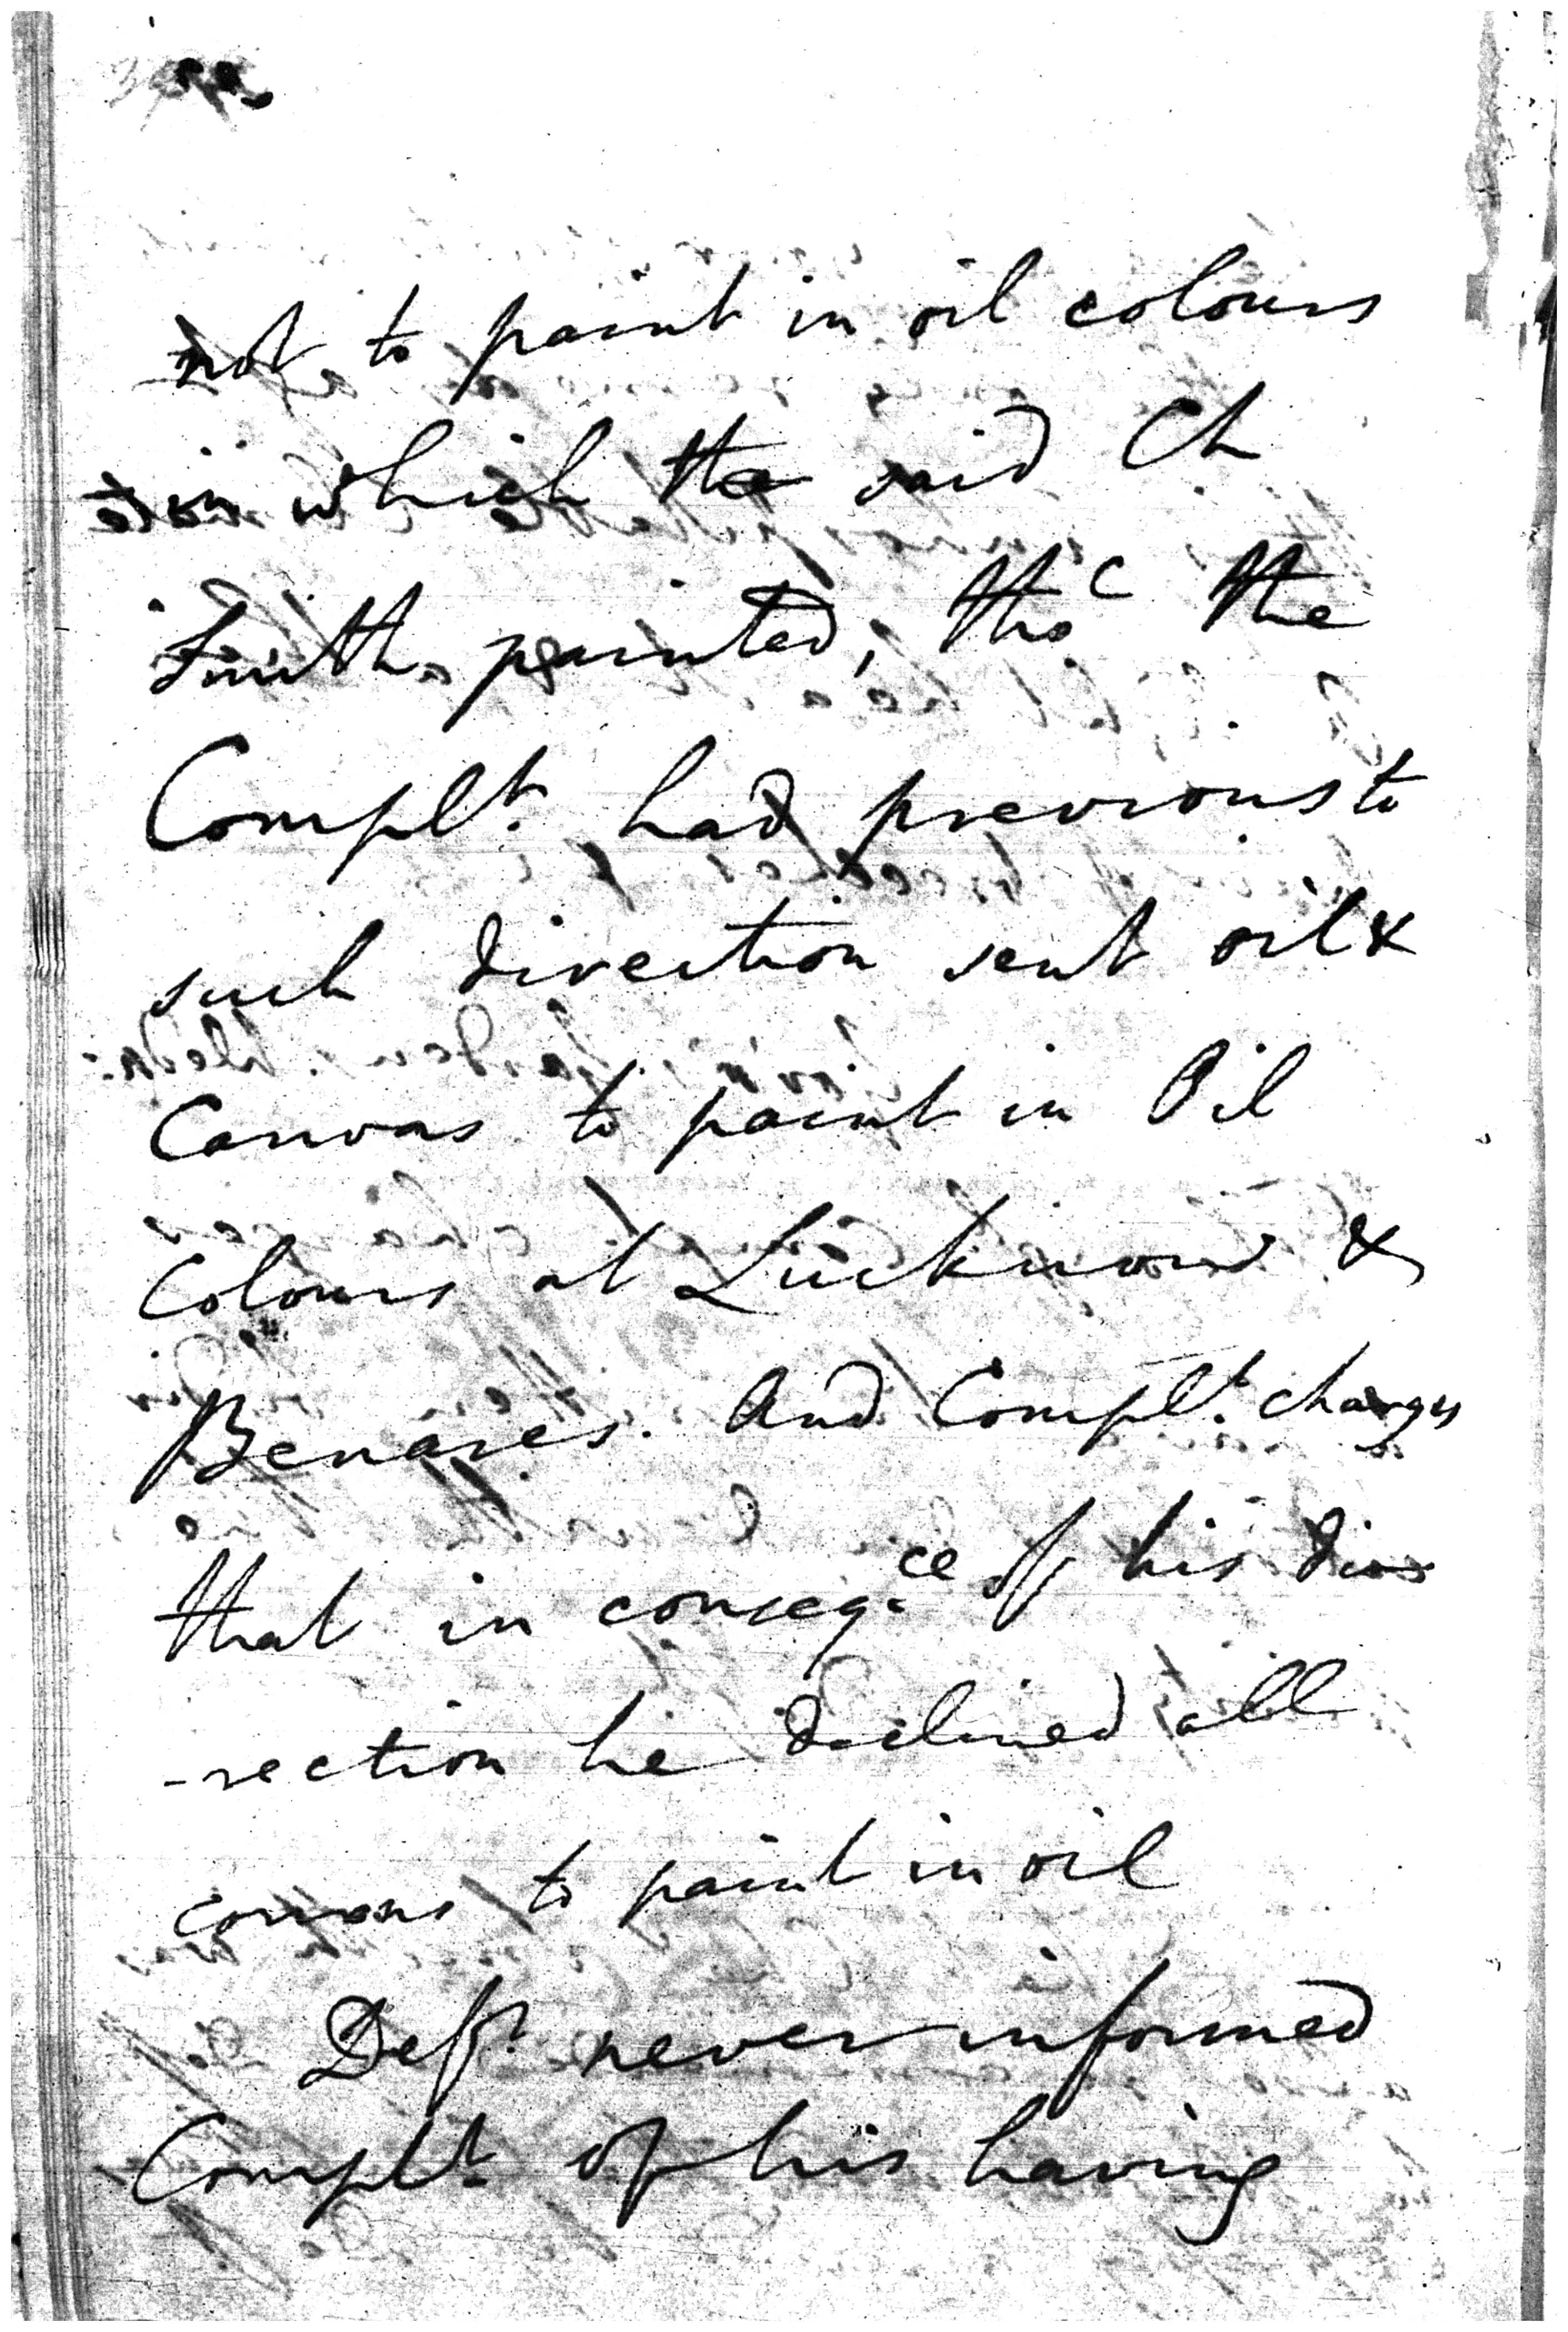 not to paint in oil colours
in which the said Ch
Smith painted, tho the
Complt. had previous to
such direction sent oil &
Canvas to paint in Oil
Colours at Lucknow &
Benares. And Complt. charges
that in conseq.ce of his di
-rection he declined all
to paint in oil
Deft. never informed
Complt. of his having